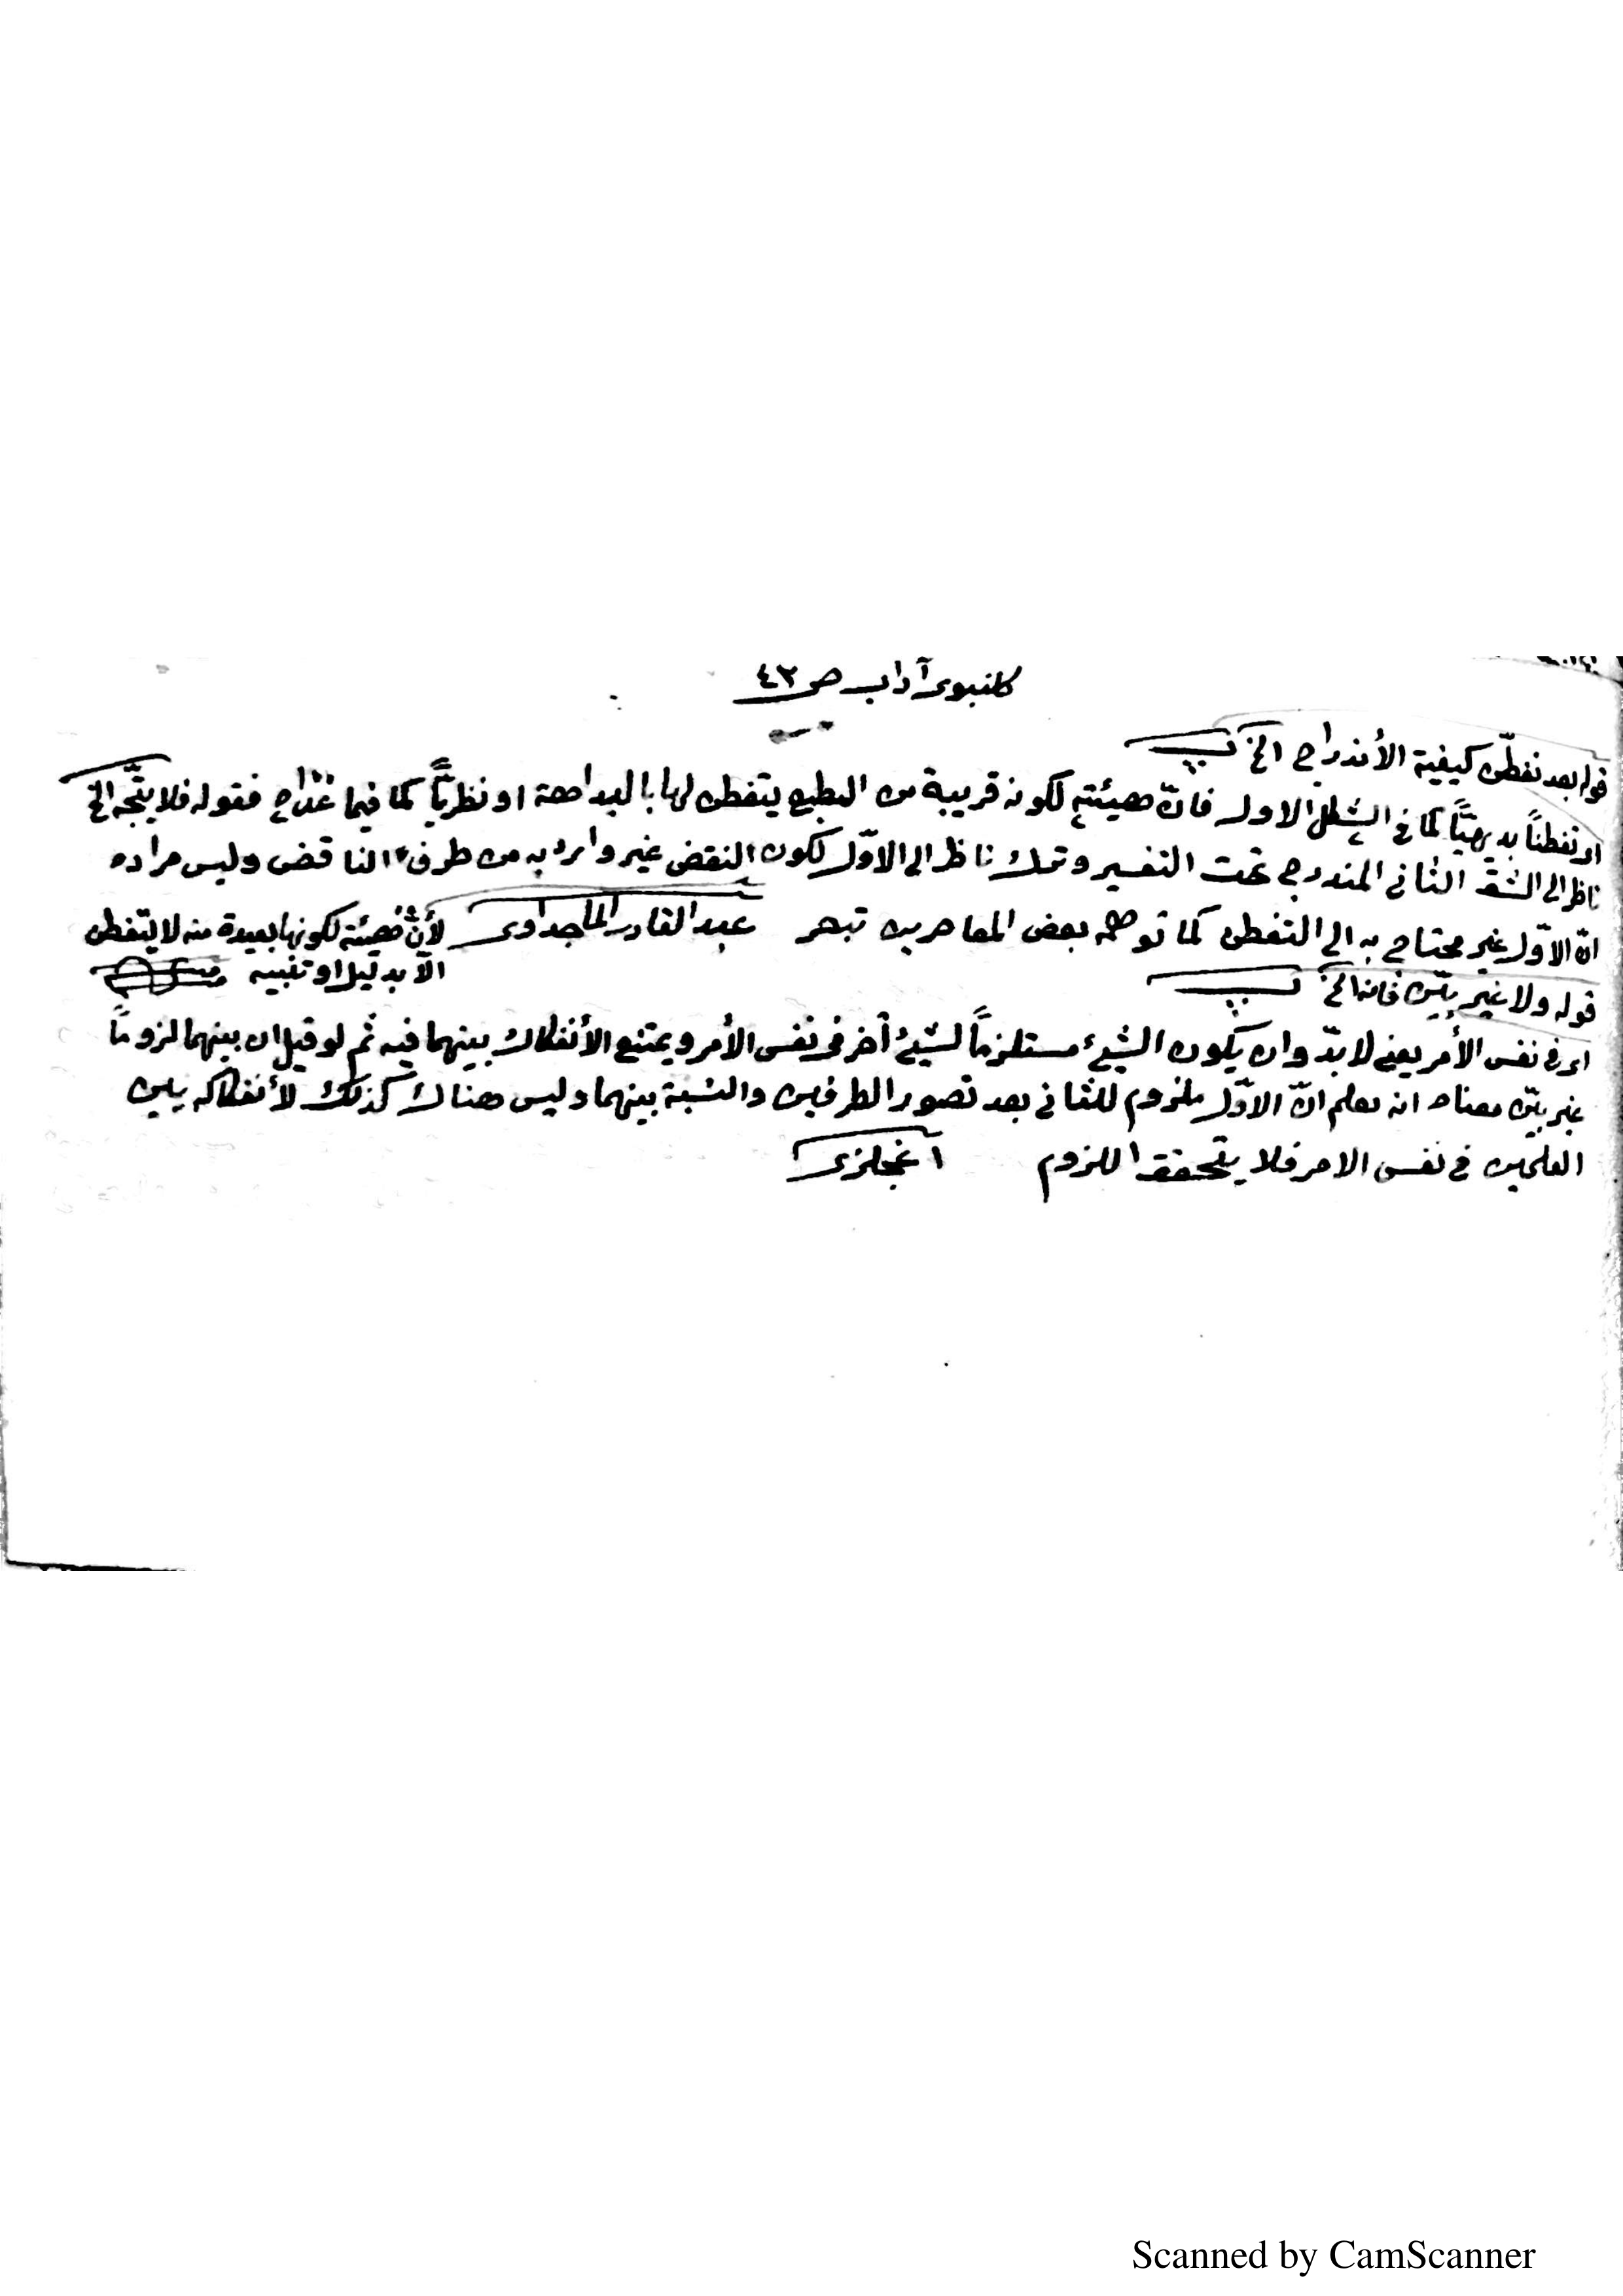 كلنبوى آداب ص ٤٣
قوله بعد تفطّن كيفية الأندراج الخ
اى تفطناً بديهيّاً كما فى الشكل الاول فانّ هيئته لكونه قريبة من الطبع يتفطن لها بالبداهة او نظريّاً كما فيما عداه فقوله فلا يتّجه الخ
ناظر الى الشق الثانى المندرج تحت التفسير وتمك ناظر الى الاوّل لكون النقض غير وارد به من طرف الناقض وليس مراده
انّ الاوّل غير محتاج به الى التفطن كما توهمه بعض المعاصرين تبصر عبد القادر الماجداوى
لأنّ هيئته لكونها بعيدة منه لا يتفطن
الّا بدليل او تنبيه
قوله ولا غير بيّن فانه الخ
اى فى نفس الأمر يعنى لا بدّ وان يكون الشيء مستلزماً لشيء آخر فى نفس الأمر ويمتنع الأنفكاك بينهما فيه ثم لو قيل ان بينهما لزوماً
غير بيّن معناه انه يعلم انّ الاوّل ملزوم للثانى بعد تصور الطرفين والنسبة بينهما وليس هناك كذلك لأنفكاكه بين
العلمين فى نفس الامر فلا يتحقق اللزوم ا نجلزى
Scanned by CamScanner